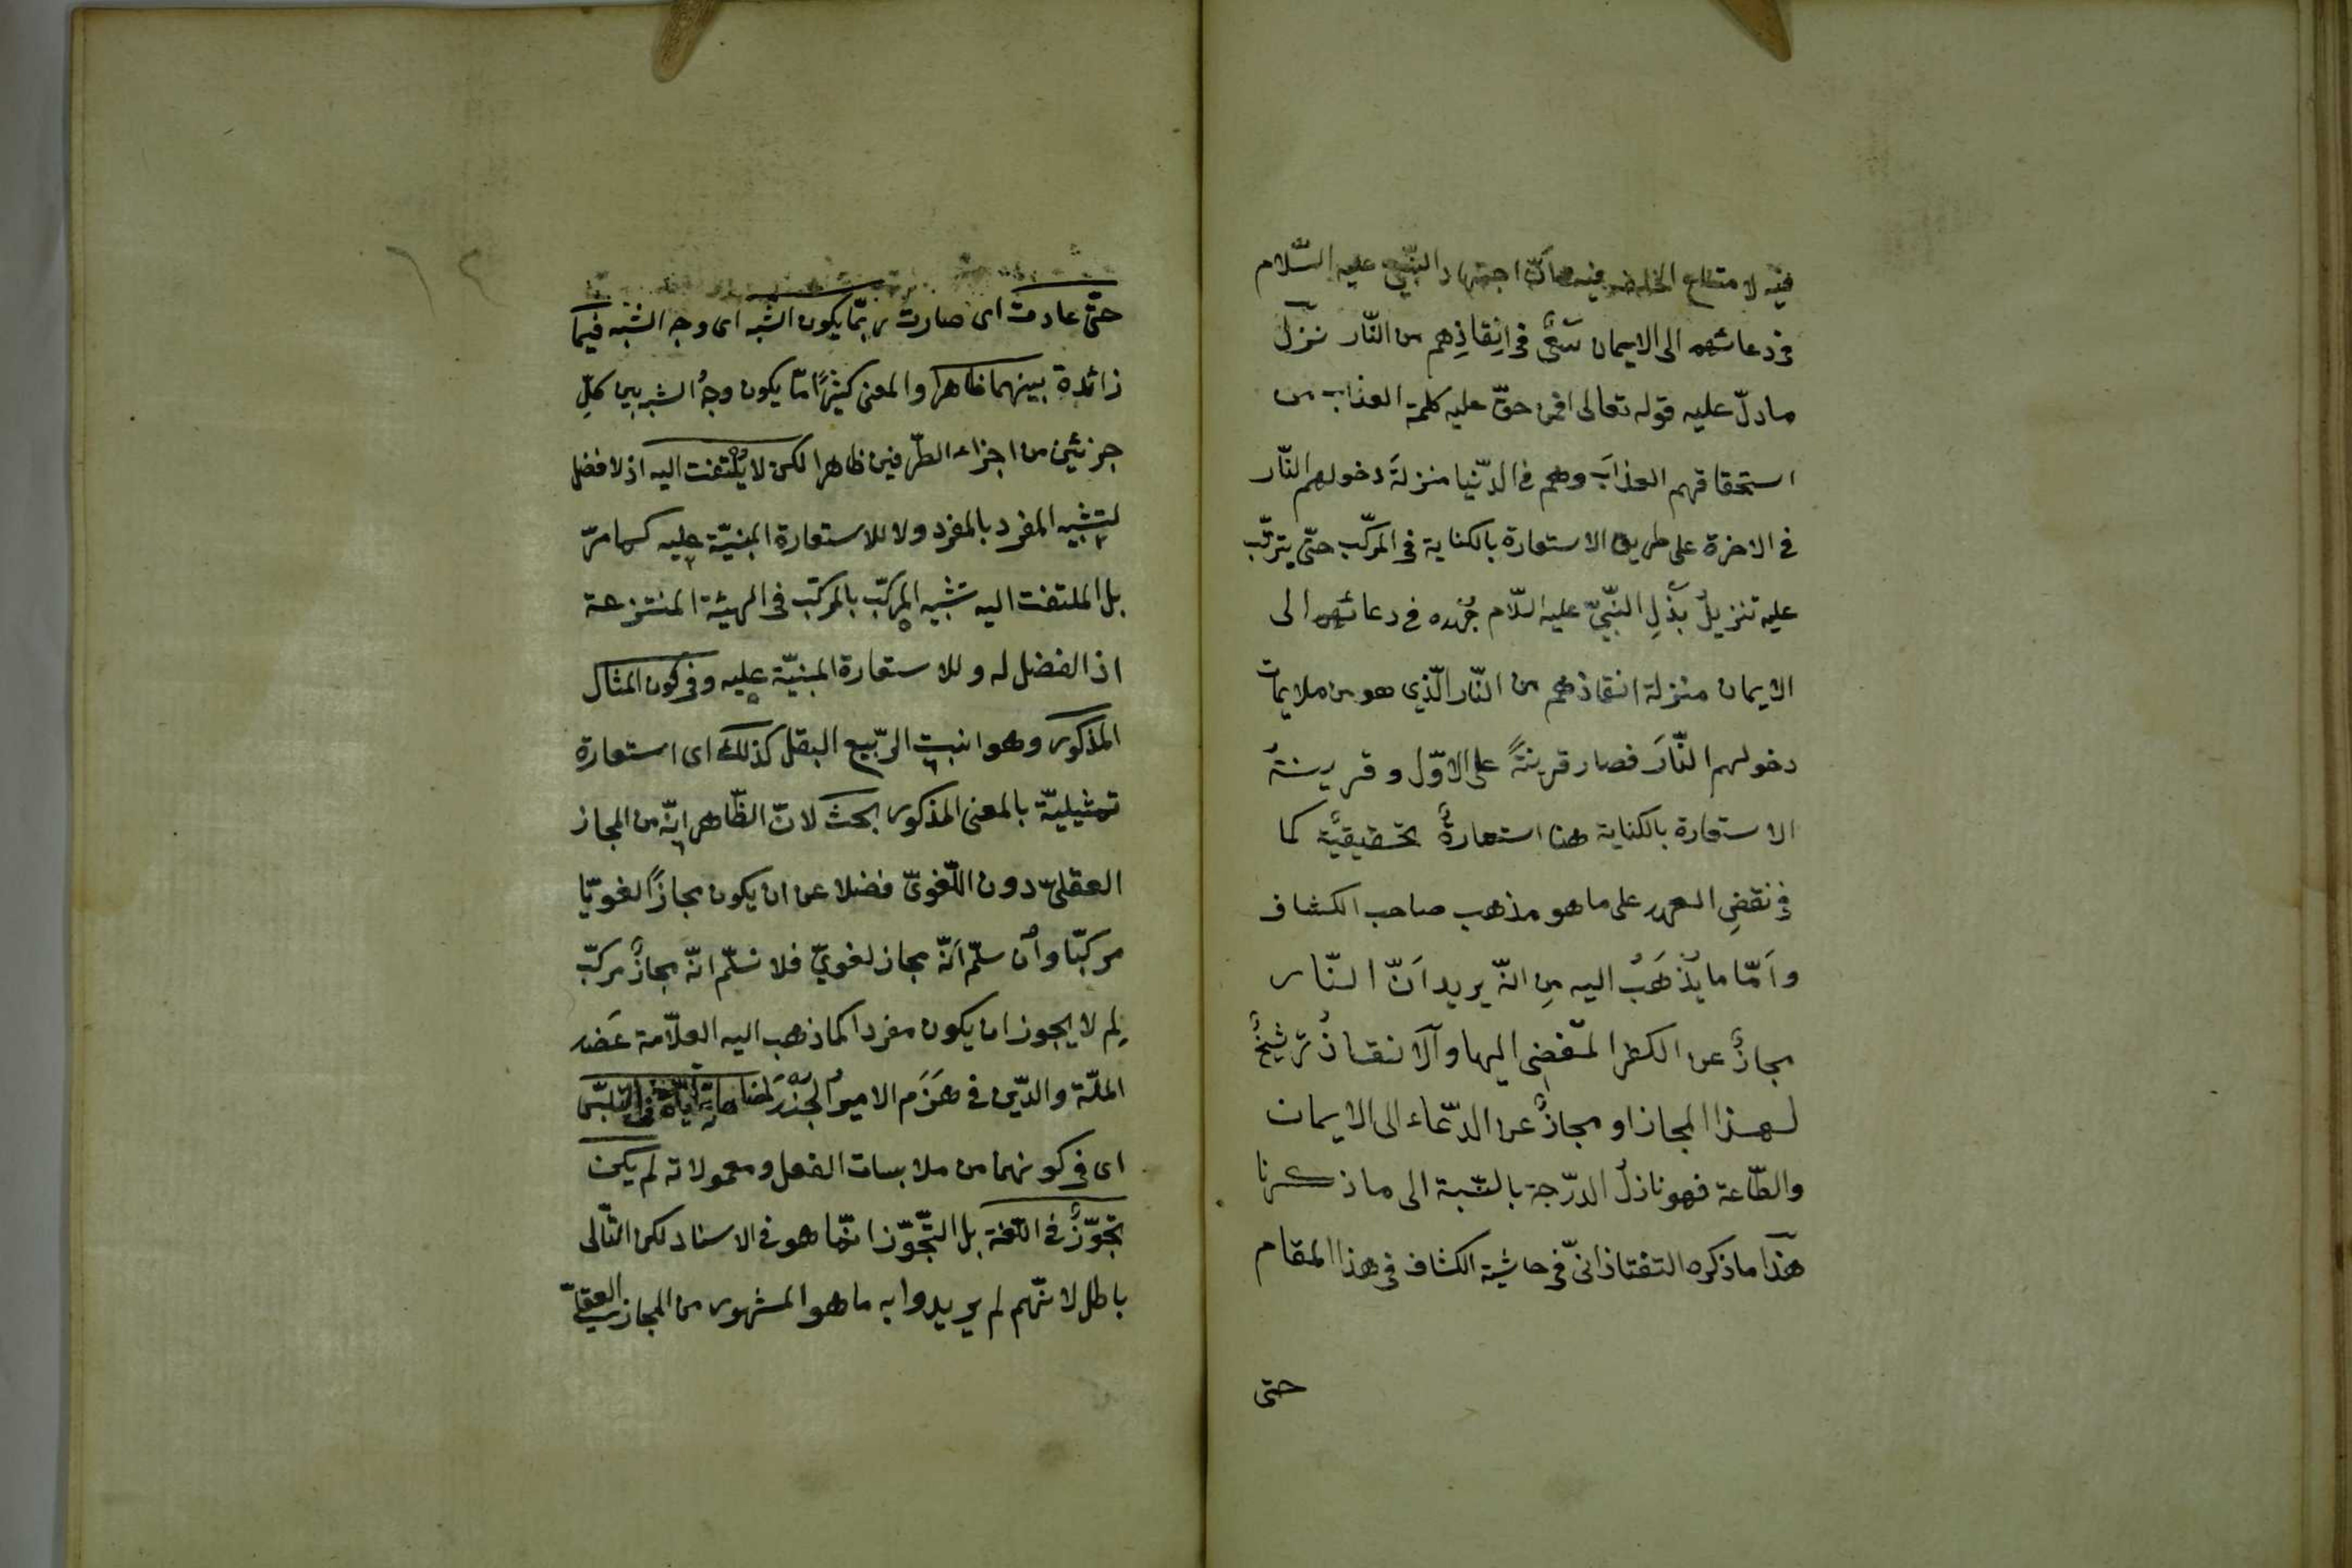 فيه لا متناع الخلف فيه كانّ اجتهاد النّبيّ عليه السّلام
فى دعائهم الى الايمان سَعْىٌ فى اِنقاذِهم من النّار نزّل
ما دلّ عليه قوله تعالى افمن حقّ عليه كلمة العذاب من
استحقاقهم العذابَ وهم فى الدّنيا منزلةَ دخولهم النّار
فى الاخرة على طريق الاستعارة بالكناية فى المركّب حتّى يترتّب
عليه تنزيلُ بَذْلِ النّبيّ عليه السّلام جُهْده فى دعائهم الى
الايمان منزلة انقاذهم من النّار الّذي هو من ملايمات
دخولهم النّارَ فصار قرينةً على الاوّل وقرينةُ
الاستعارة بالكناية هنا استعارةٌ تحقيقيّةٌ كما
فى نقضِ العهد على ما هو مذهب صاحب الكشاف
وامّا ما يُذْهَبُ اليه مِن انّه يريد اَنّ النّار
مجازٌ عن الكفر المُفضِى اليها والانقاذُ ترشيحٌ
لهذا المجاز او مجازٌ عن الدّعاء الى الايمان
والطّاعة فهو نازلُ الدرّجة بالنّسبة الى ما ذكرنا
هذا ما ذكره التفتازانىّ فى حاشية الكشاف فى هذا المقام
حتى
١٢
حتّى عادت اى صارت ربّما يكون الشّبه اى وجه الشّبه فيما
زائدة بينهما ظاهرا والمعنى كثيرًا مّا يكون وجهُ الشبه بين كلِّ
جزئين من اجزاء الطّرفين ظاهرا لكن لا يُلتفت اليه اذ لا فضل
لتشبيه المفرد بالمفرد ولا للاستعارة المبنيّة عليه كما مرّ
بل الملتفت اليه تشبيه المركّب بالمركّب فى الهيئة المنتزعة
اذ الفضل له وللاستعارة المبنيّة عليه وفى كون المثال
المذكور وهو انبت الرّبيع البقل كذلك اى استعارة
تمثيليّة بالمعنى المذكور بحث لانّ الظّاهر انّه من المجاز
العقلىّ دون اللّغوىّ فضلا عن ان يكون مجازًا لغويّا
مركبّا وان سلّم اَنّه مجاز لغويّ فلا نسلّم انّه مجازٌ مركبّ
لِم لا يجوز ان يكون مفردا كما ذهب اليه العلّامة عَضد
الملّة والدّين فى هَزَم الاميرُ الجُنْدَ لمضاهاته ايّاه فى التلبّس
اى فى كونهما من ملابسات الفعل ومعمولاته لم يكن
تجوّزٌ فى اللّغة بل التّجوّز انّما هو فى الاسناد لكن التّالى
باطل لانّهم لم يريدوا به ما هو المشهور من المجاز العقلىّ